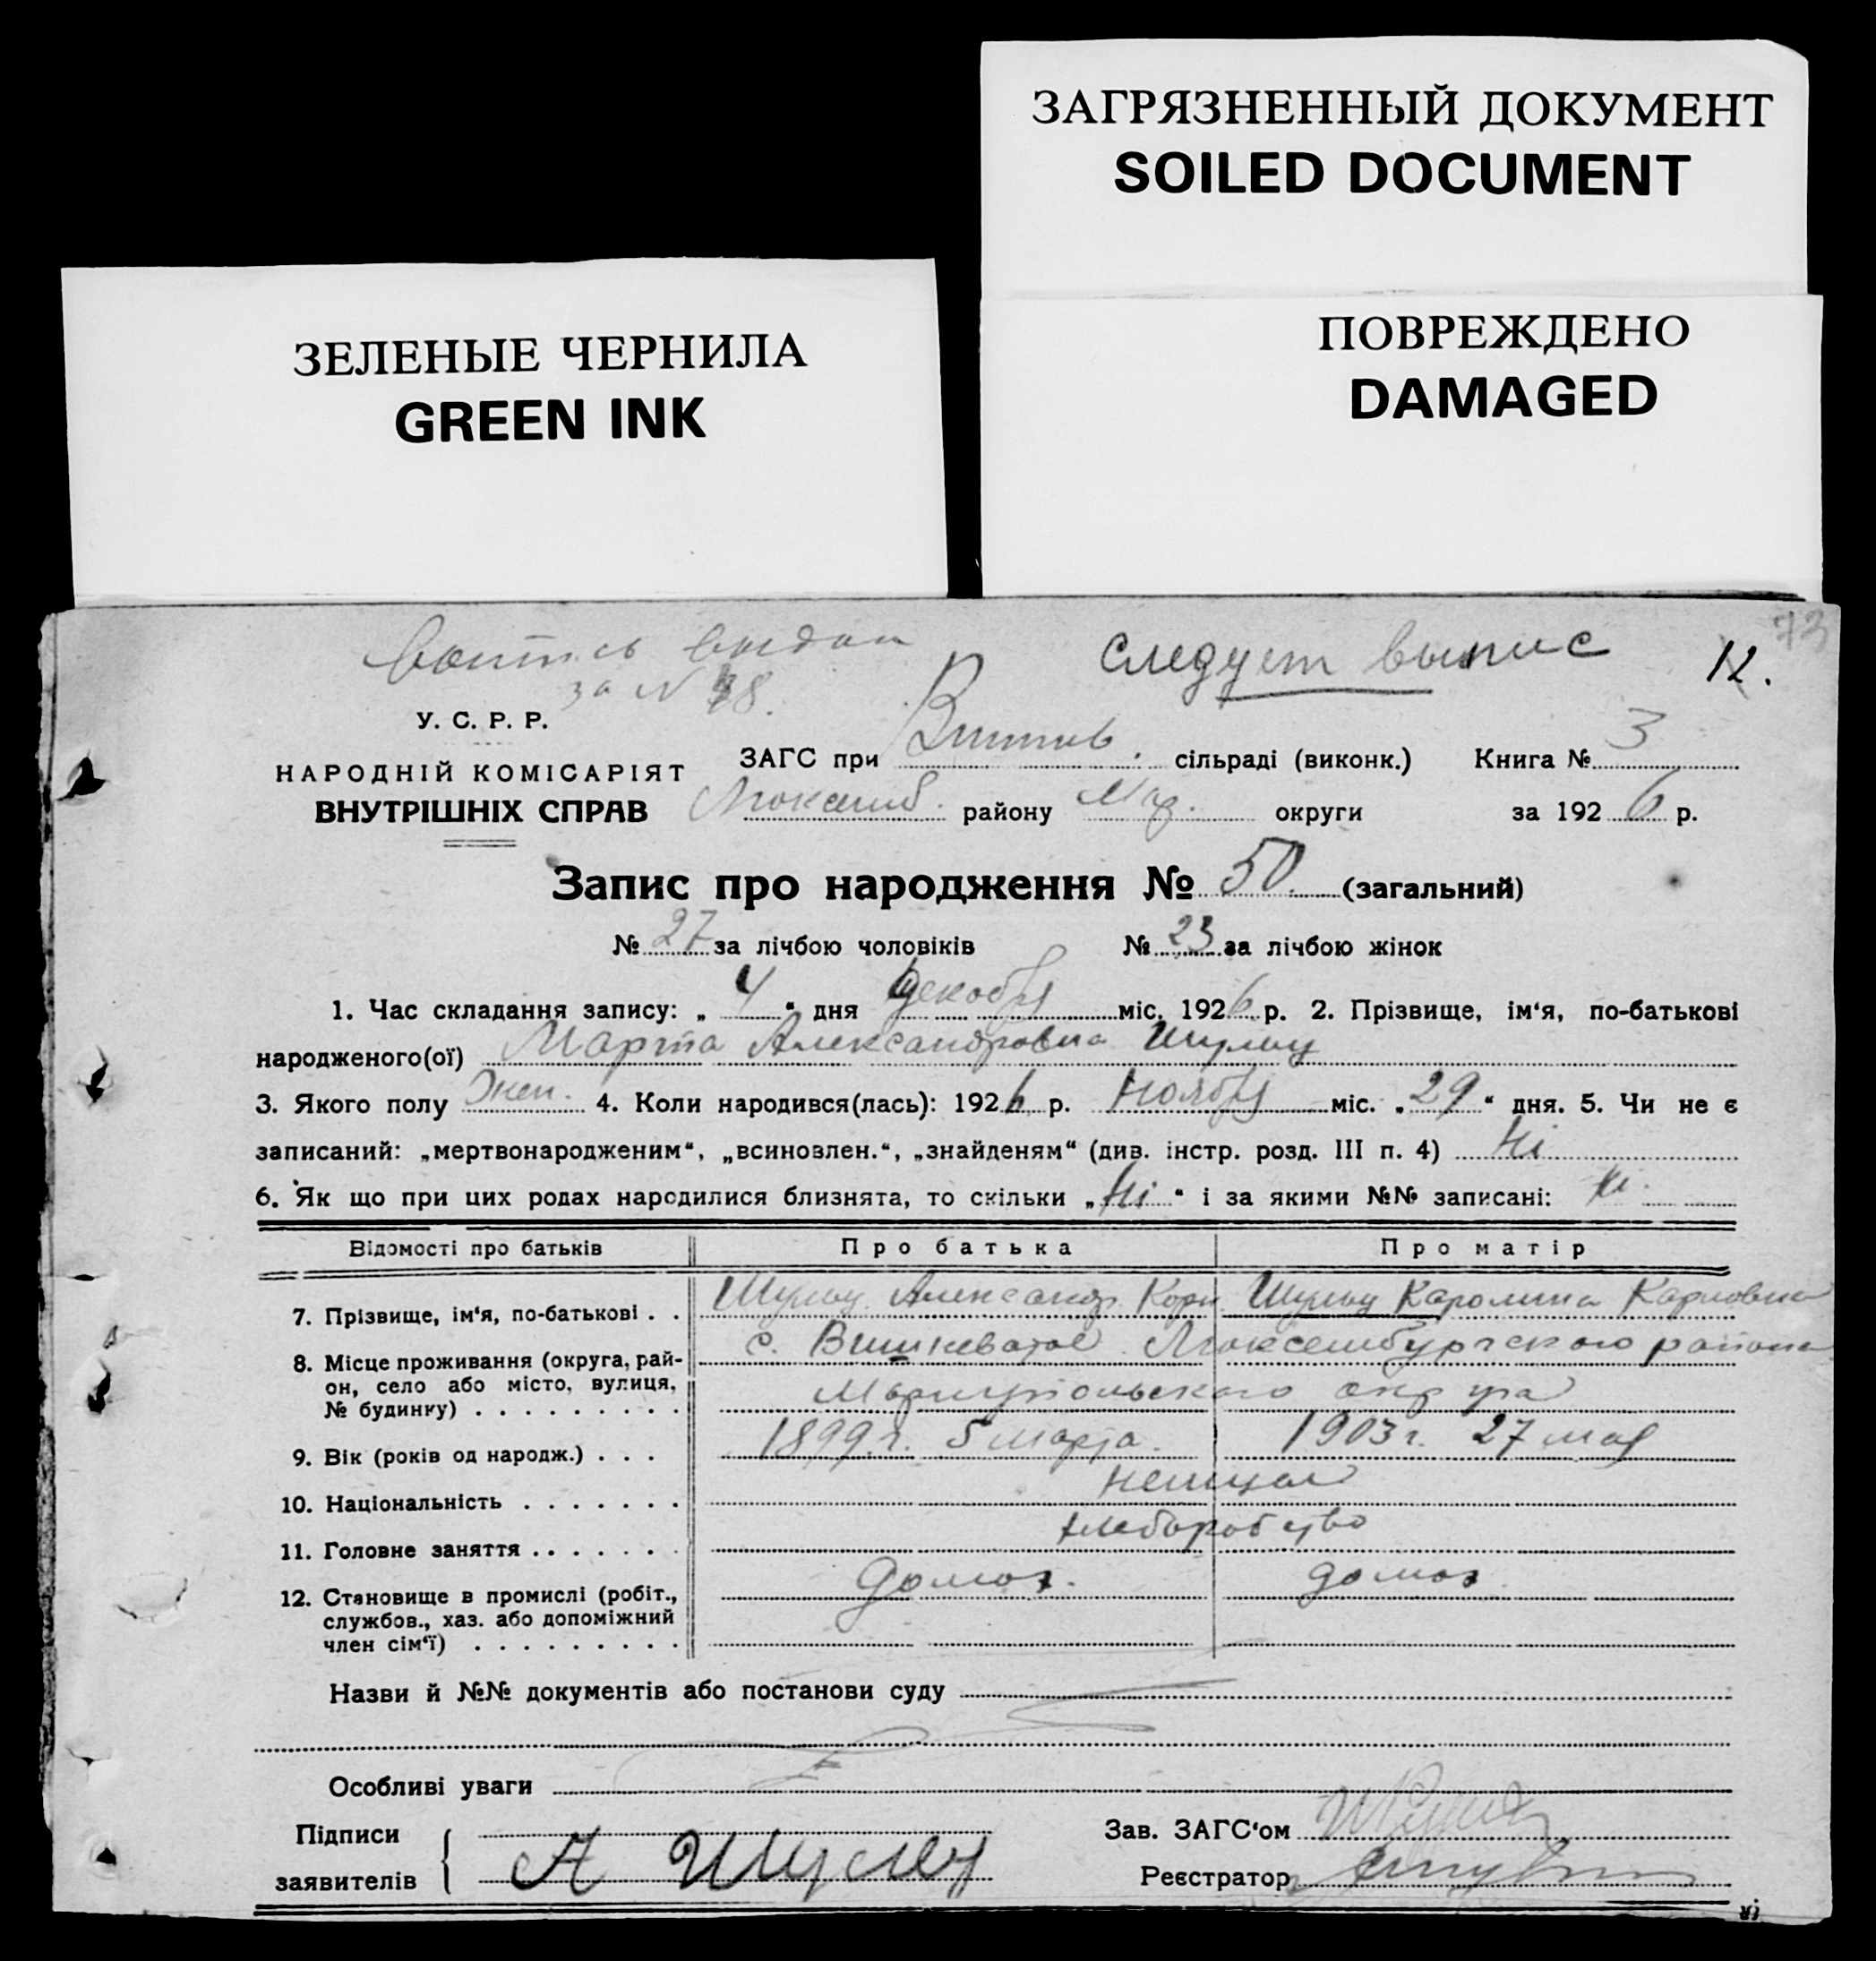 ЗАГРЯЗНЕННЫЙ ДОКУМЕНТ
SOILED DOCUMENT
ЗЕЛЕНЫЕ ЧЕРНИЛА
GREEN INK
ПОВРЕЖДЕНО
DAMAGED
73
следует выпис 12.
за N
У. С. Р. Р.
НАРОДНІЙ КОМІСАРІЯТ
ВНУТРІШНІХ СПРАВ
ЗАГС при сільраді (виконк.) Книга № 3
Люксемб. району Мар. округи за 1926 р.
Запис про народження № 50 (загальний)
№ 27 за лічбою чоловіків № 23 за лічбою жінок
1. Час складання запису: „ 4 “ дня декабря міс. 1926 р. 2. Прізвище, ім‘я, по-батькові
народженого(ої) Марта Александровна Шульц
3. Якого полу Жен. 4. Коли народився(лась): 1926 р. Ноября міс. „ 29 “ дня. 5. Чи не є
записаний: „мертвонародженим“, „всиновлен.“, „знайденям“ (див. інстр. розд. III п. 4) Ні
6. Як що при цих родах народилися близнята, то скільки „ Ні “ і за якими №№ записані: Ні.
Відомості про батьків Про батька Про матір
7. Прізвище, ім‘я, по-батькові . . Шульц Александр Корн Шульц Каролина Карловна
8. Місце проживання (округа, рай-
он, село або місто, вулиця,
№ будинку) . . . . . . . . .
с. Вишневатое Люксембургского района
Мариупольского округа
9. Вік (років од народж.) . . . 1899 г. 5 марта. 1903 г. 27 мая
10. Національність . . . . . . . немцы
11. Головне заняття . . . . . . . хлеборобство
12. Становище в промислі (робіт.,
службов., хаз. або допоміжний
член сім‘ї) . . . . . . . . .
домоз. домоз
Назви й №№ документів або постанови суду
Особливі уваги
Підписи
заявителів
А Шульц
Зав. ЗАГС‘ом
Реєстратор